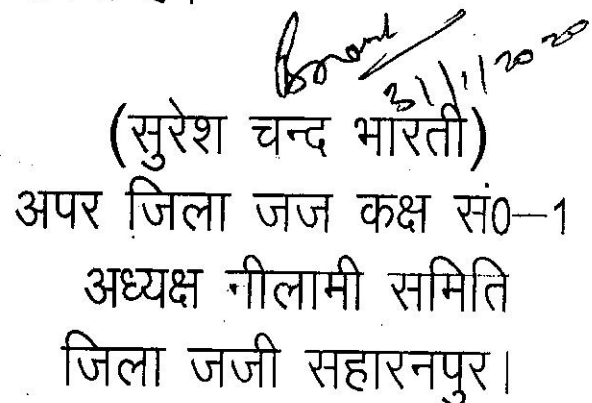 31/1/2020
(सुरेश चन्द भारती)
अपर जिला जज कक्ष सं0—1
अध्यक्ष नीलामी समिति
जिला जजी सहारनपुर।